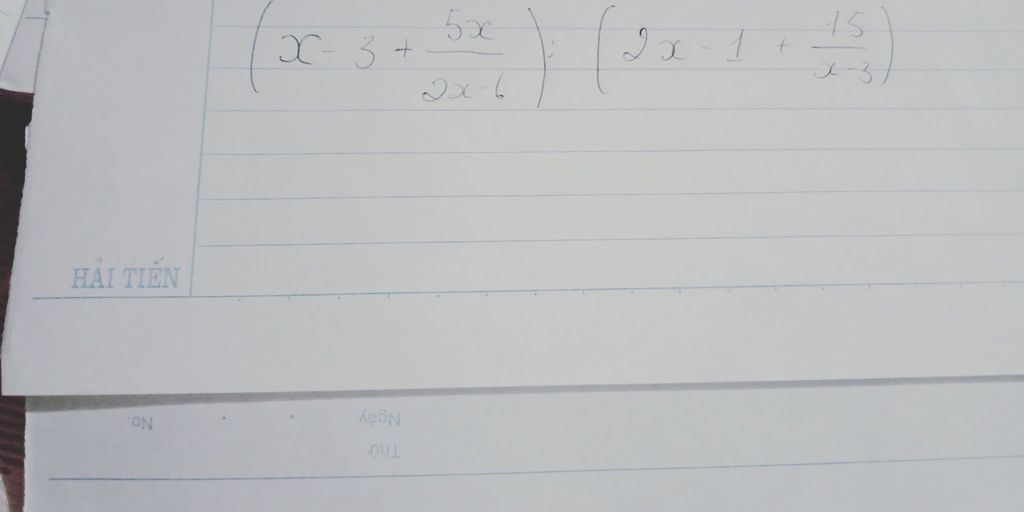 (x - 3 + 5x/(2x-6)) : (2x - 1 + 15/(x-3))
HẢI TIẾN
No.
Ngày
Thứ